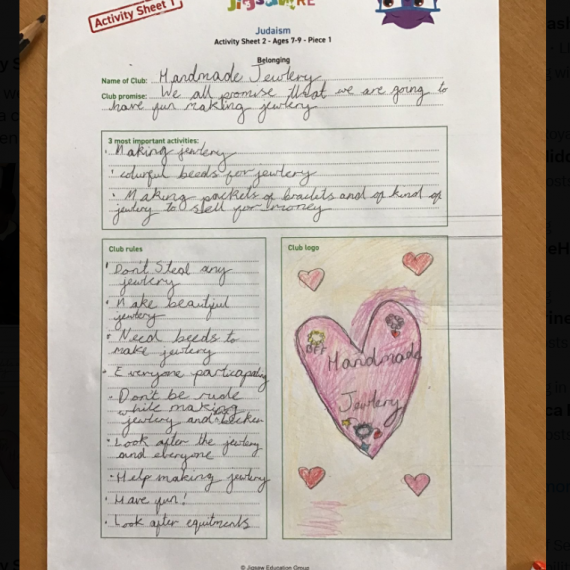 Activity Sheet 1
Jigsaw RE
Judaism
Activity Sheet 2 - Ages 7-9 - Piece 1
Belonging
Name of Club: Handmade Jewtlery
Club promise: We all promise that we are going to
have fun making jewtlery
3 most important activities:
· Making jewtlery
· colurful beeds for jewtlery
· Making packets of braclits and of kind of
jewtlery to stell for money
Club rules
· Don't Steal any
jewtlery
· Make beautiful
jewtlery
· Need beeds to
make jewtlery
· Everyone particapating
· Don't be rude
while making
jewtlery and
· Look after the jewtlery
and everyone
· Help making jewtlery
· Have fun!
· Look after equitments
Club logo
BFF
Handmade
Jewtlery
© Jigsaw Education Group